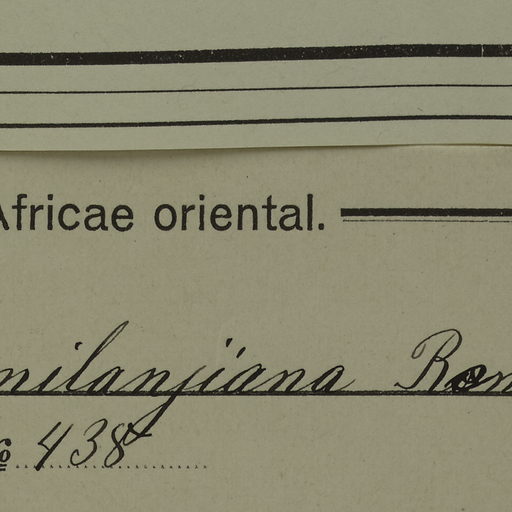 Africae oriental.
milanjiana Ren
№ 438